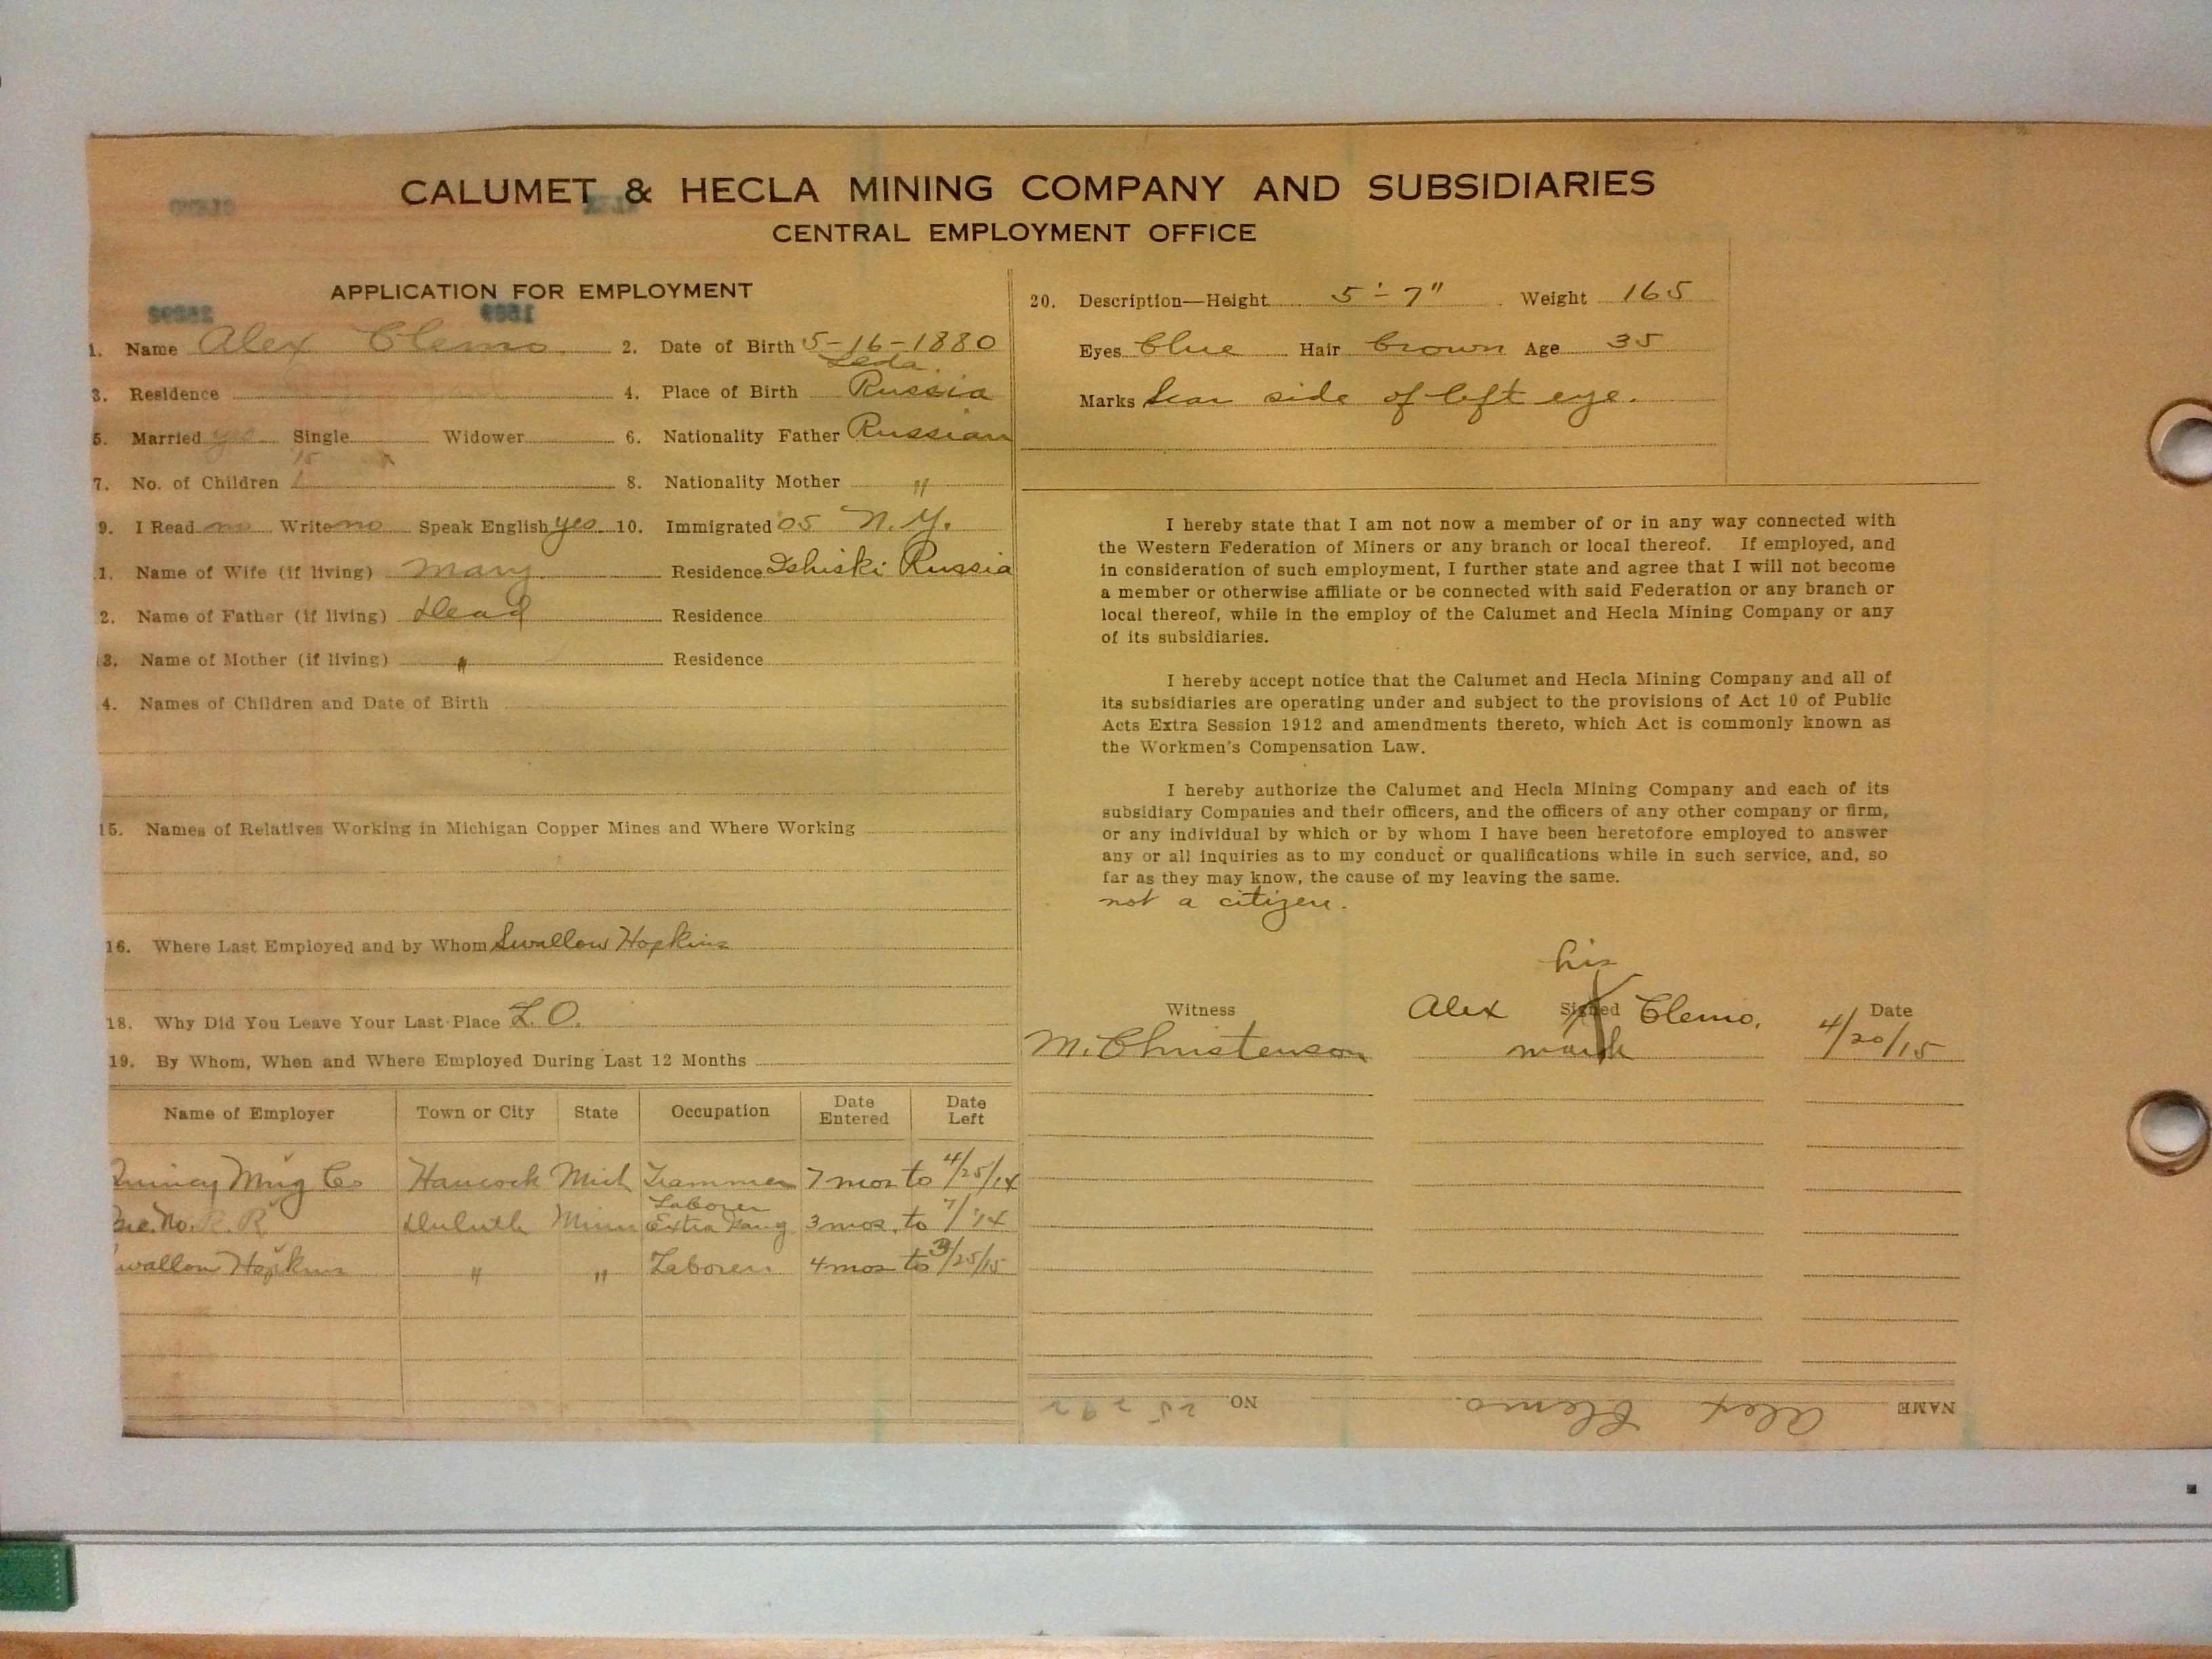 CALUMET & HECLA MINING COMPANY AND SUBSIDIARIES
CENTRAL EMPLOYMENT OFFICE
APPLICATION FOR EMPLOYMENT
1. Name Alex Clemo 2. Date of Birth 5-16-1880
3. Residence 4. Place of Birth Russia
5. Married yes Single Widower 6. Nationality Father Russian
7. No. of Children 1 8. Nationality Mother "
9. I Read no Write no Speak English yes 10. Immigrated 05 N.Y.
1. Name of Wife (if living) Mary Residence Ishiski Russia
2. Name of Father (if living) Dead Residence
3. Name of Mother (if living) " Residence
4. Names of Children and Date of Birth
15. Names of Relatives Working in Michigan Copper Mines and Where Working
16. Where Last Employed and by Whom Swallow Hopkins
18. Why Did You Leave Your Last Place L.O.
19. By Whom, When and Where Employed During Last 12 Months
Name of Employer Town or City State Occupation Date Entered Date Left
Quincy Mng Co Hancock Mich Trammer 7 mos to 4/25/14
No. R.R. Duluth Minn Laborer Extra Gang 3 mos. to 7/14
wallow Hopkins " " Laborer 4 mos to 3/25/15
20. Description—Height 5'-7" Weight 165
Eyes Blue Hair Brown Age 35
Marks Scar side of left eye.
I hereby state that I am not now a member of or in any way connected with
the Western Federation of Miners or any branch or local thereof. If employed, and
in consideration of such employment, I further state and agree that I will not become
a member or otherwise affiliate or be connected with said Federation or any branch or
local thereof, while in the employ of the Calumet and Hecla Mining Company or any
of its subsidiaries.
I hereby accept notice that the Calumet and Hecla Mining Company and all of
its subsidiaries are operating under and subject to the provisions of Act 10 of Public
Acts Extra Session 1912 and amendments thereto, which Act is commonly known as
the Workmen's Compensation Law.
I hereby authorize the Calumet and Hecla Mining Company and each of its
subsidiary Companies and their officers, and the officers of any other company or firm,
or any individual by which or by whom I have been heretofore employed to answer
any or all inquiries as to my conduct or qualifications while in such service, and, so
far as they may know, the cause of my leaving the same.
not a citizen.
his
Witness Alex Signed X Clemo. Date
M. Christenson mark 4/20/15
NAME Alex Clemo. NO. 25292